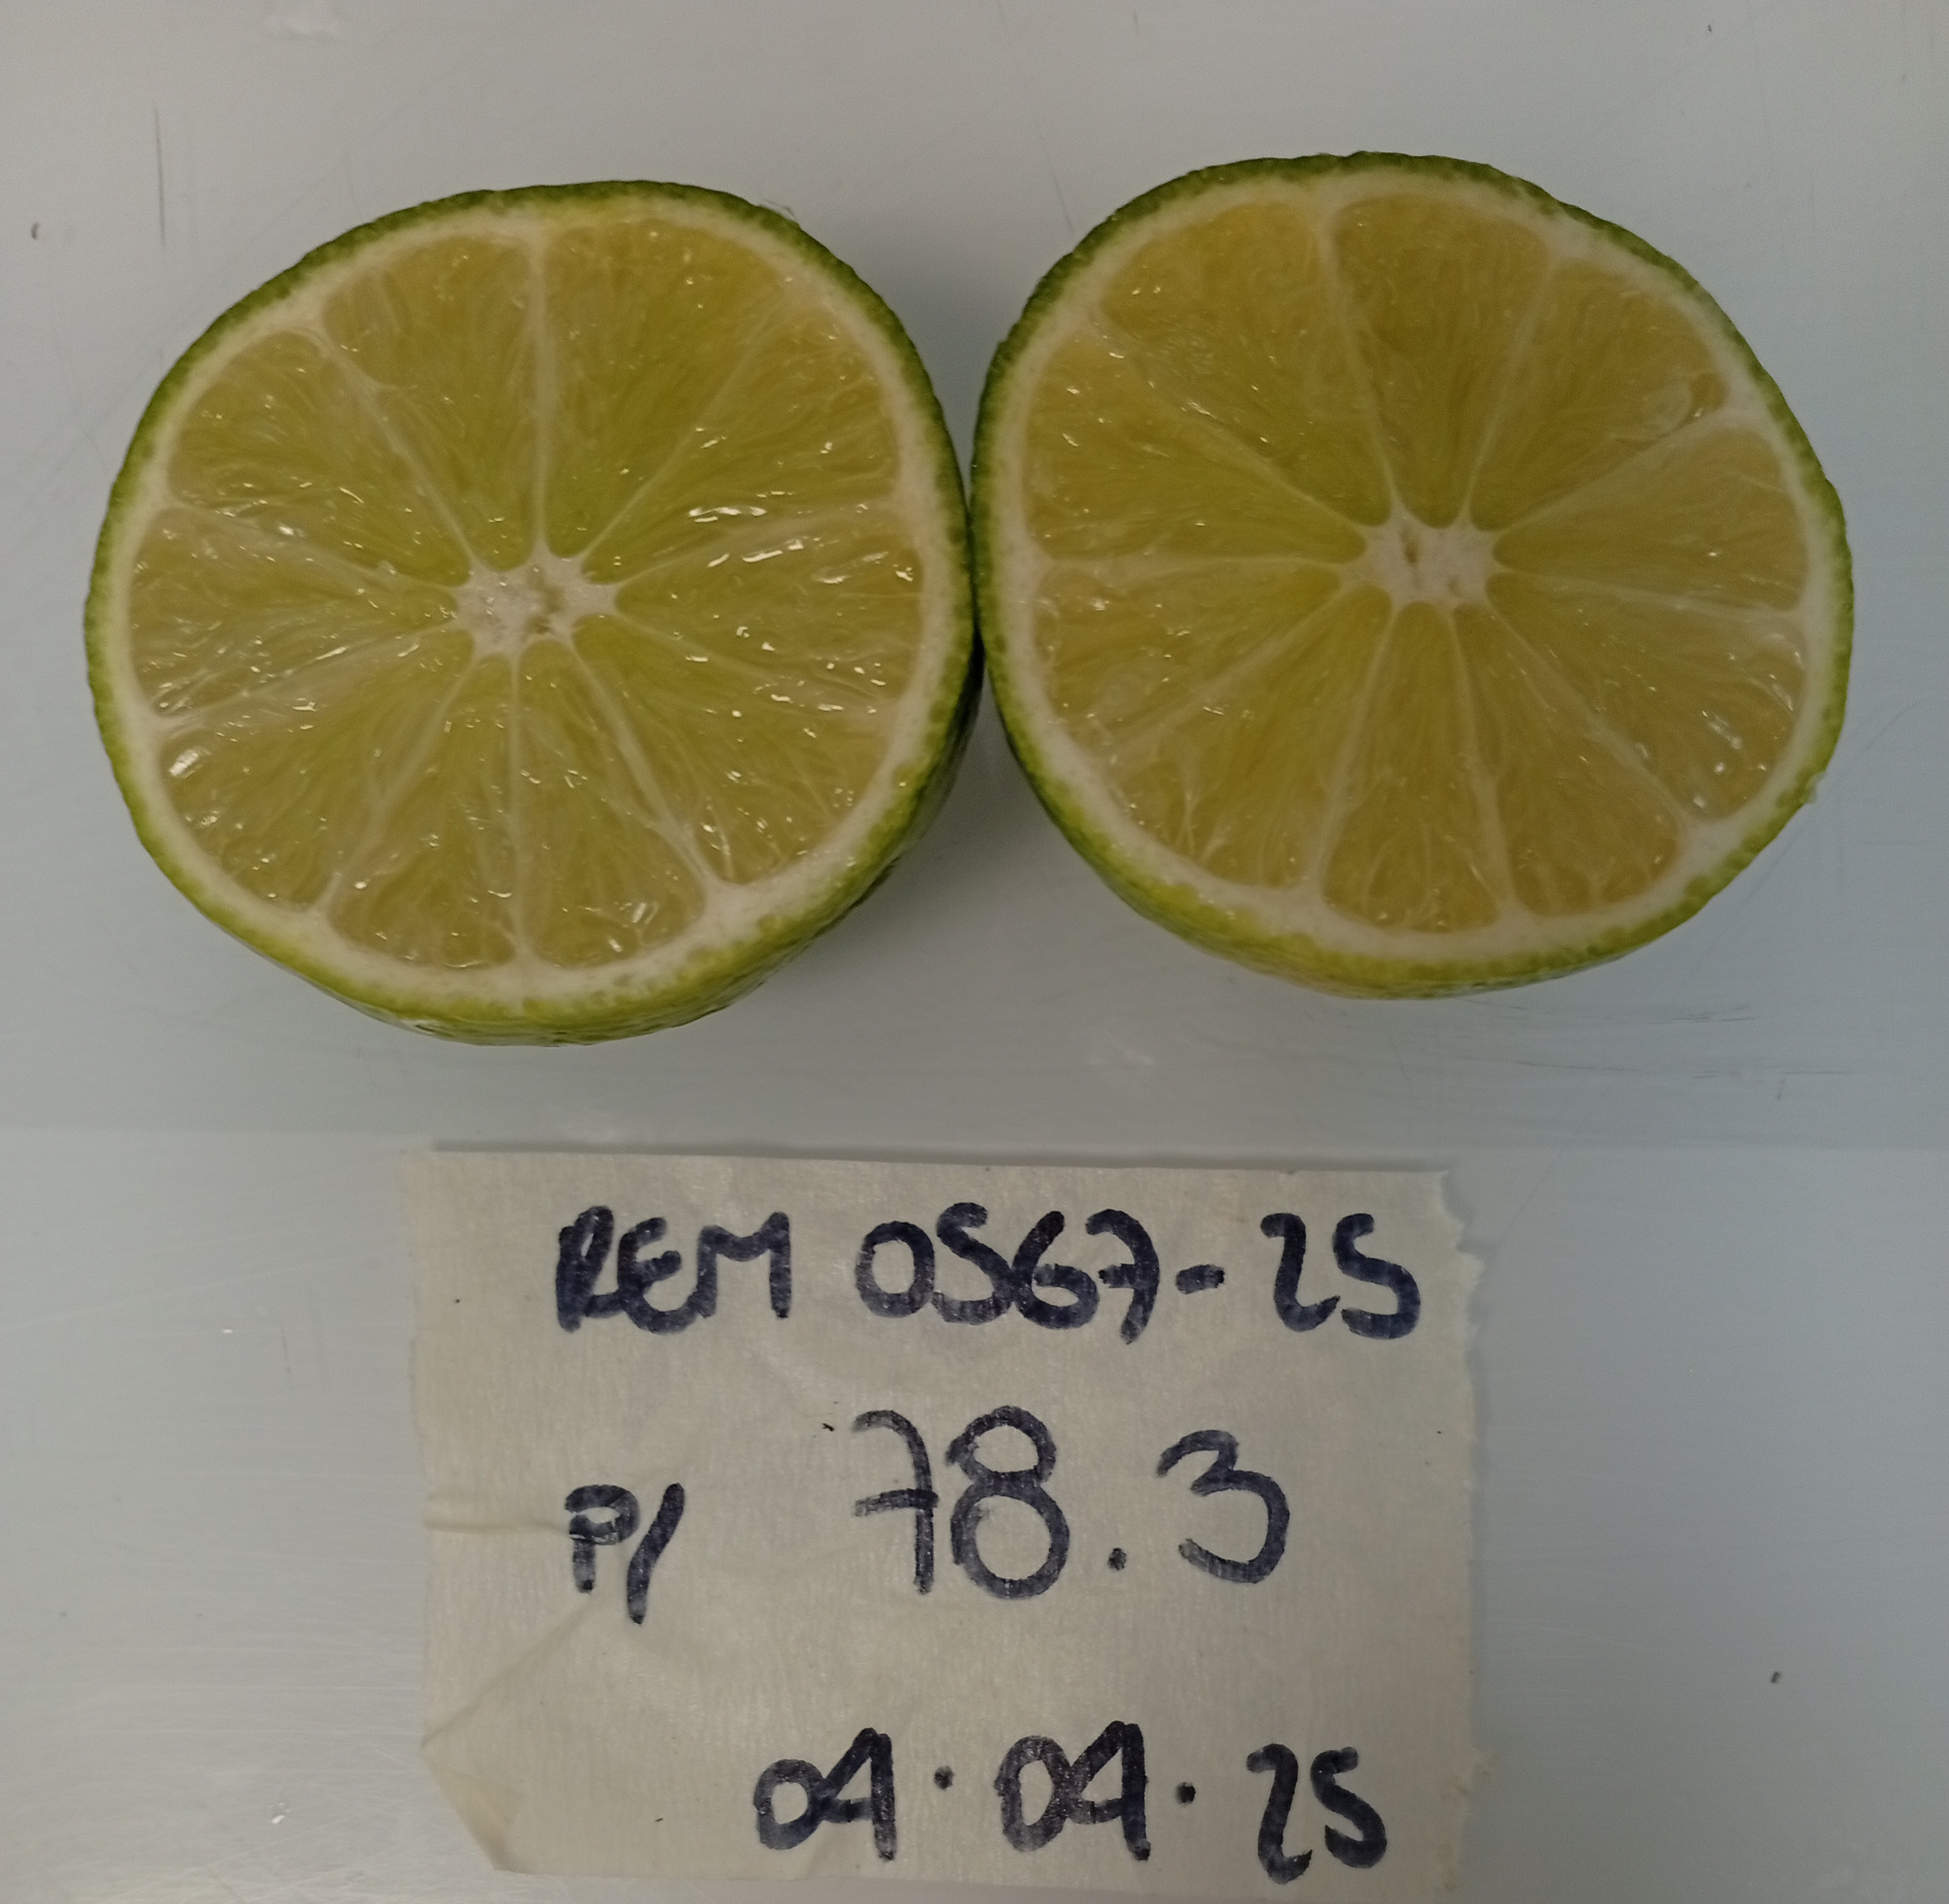 REM 0567-25
P/ 78.3
04.04.25